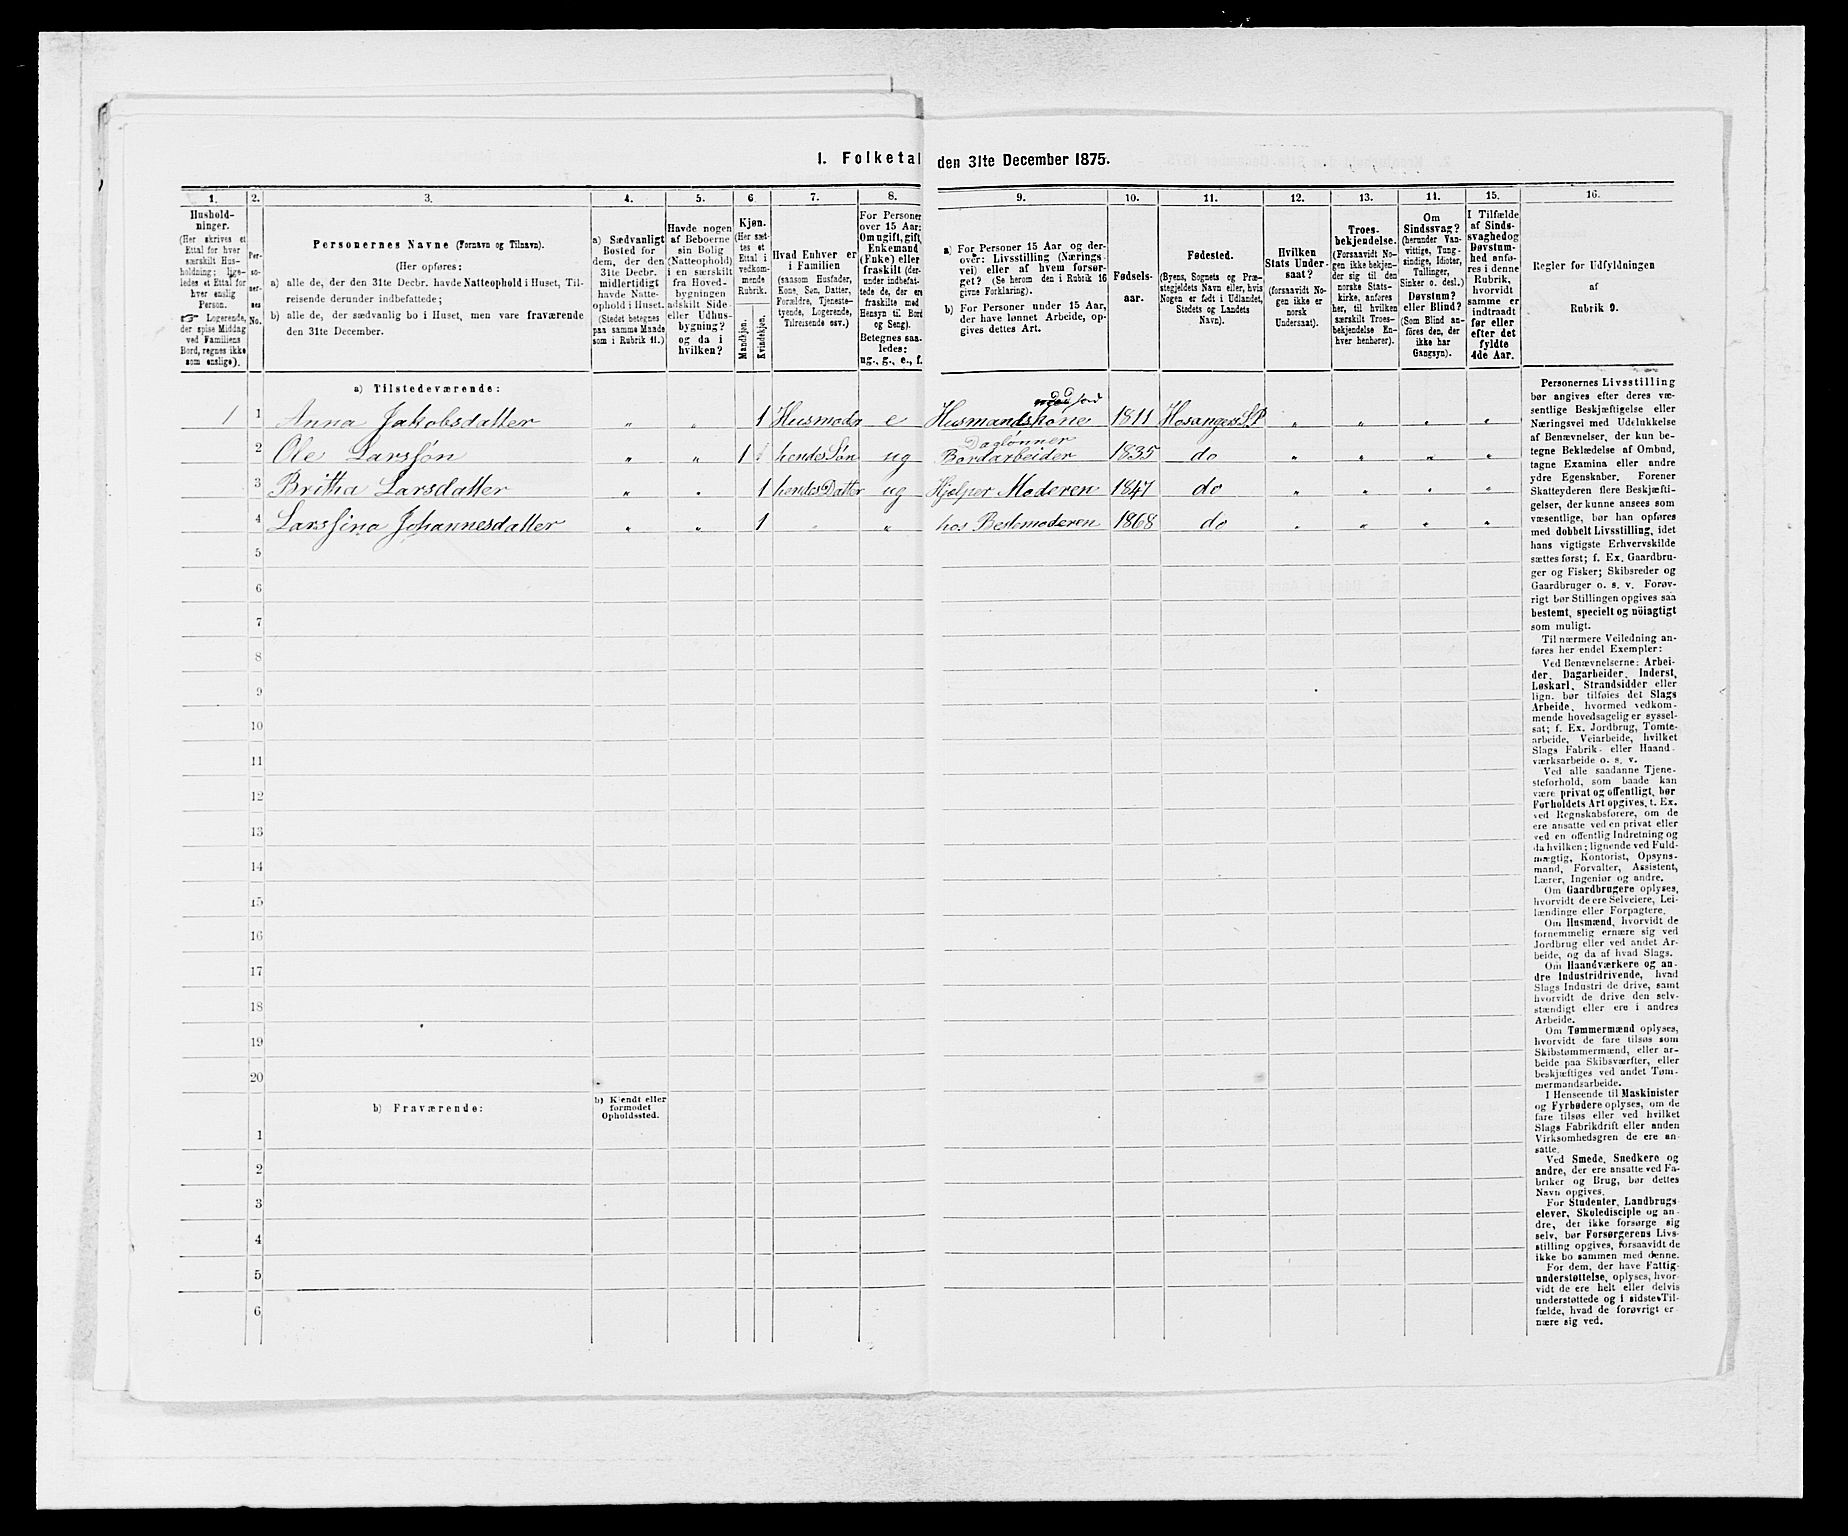 1. Folketal den 31te December 1875.
1. 2. 3. 4. 5. 6. 7. 8. 9. 10. 11. 12. 13. 14. 15. 16.
Hushold-
ninger.
(Her skrives et
Ettal for hver
særskilt Hus-
holdning; lige-
ledes et Ettal for
hver enslig
Person.
☞ Logerende,
der spise Middag
ved Familiens
Bord, regnes ikke
som enslige).
Per-
so-
ner-
nes
No.
Personernes Navne (Fornavn og Tilnavn).
(Her opføres:
a) alle de, der den 31te Decbr. havde Natteophold i Huset, Til-
reisende derunder indbefattede;
b) alle de, der sædvanlig bo i Huset, men vare fraværende
den 31te December.
a) Sædvanligt
Bosted for
dem, der den
31te Decbr.
midlertidigt
havde Natte-
ophold i Huset.
(Stedet betegnes
paa samme Maade
som i Rubrik 11.)
Havde nogen
af Beboerne
sin Bolig
(Natteophold)
i en særskilt
fra Hoved-
bygningen
adskilt Side-
eller Udhus-
bygning?
og da i
hvilken?
Kjøn.
(Her sæt-
tes et
Ettal i
vedkom-
mende
Rubrik.
Mandkjøn.
Kvindekjøn.
Hvad Enhver er
i Familien
(saasom Husfader,
Kone, Søn, Datter,
Forældre, Tjeneste-
tyende, Logerende,
Tilreisende osv.)
For Personer
over 15 Aar:
Om ugift, gift,
Enkemand
(Enke) eller
fraskilt (der-
under indbefat-
tede de, der ere
fraskilte med
Hensyn til Bord
og Seng).
Betegnes saa-
ledes:
ug., g., e., f.
a) For Personer 15 Aar og der-
over: Livsstilling (Nærings-
vei) eller af hvem forsør-
get? (Se herom den i Rubrik 16
givne Forklaring).
b) For Personer under 15 Aar,
der have lønnet Arbeide, op-
gives dettes Art.
Fødsels-
aar.
Fødested.
(Byens, Sognets og Præ-
stegjeldets Navn eller, hvis
Nogen er født i Udlandet,
Stedets og Landets
Navn).
Hvilken
Stats Under-
saat?
(forsaavidt No-
gen ikke er
norsk
Undersaat).
Troes-
bekjendelse.
(Forsaavidt No-
gen ikke bekjen-
der sig til den
norske Stats-
kirke, anføres
her, til hvilken
særskilt Troes-
bekjendelse En-
hver henhører).
Om
Sindssvag?
(herunder Van-
vittige, Tung-
sindige, Idioter,
Tullinger,
Sinker o. desl.)
Døvstum?
eller Blind?
(Som Blind an-
føres den, der
ikke har
Gangsyn).
I Tilfælde
af Sinds-
svaghed og
Døvstum-
hed anfø-
res i denne
Rubrik,
hvorvidt
samme er
indtraadt
før eller
efter det
fyldte
4de Aar.
Regler for Udfyldningen
af
Rubrik 9.
a) Tilstedeværende:
1 1 Anna Jakobsdatter " " 1 Husmoder e Husmandskone med Jord 1811 Hosanger S.P. " " " "
2 Ole Larssøn " " 1 hendes Søn ug Daglønner Bordarbeider 1835 do " " " "
3 Britha Larsdatter " " 1 hendes Datter ug Hjælper Moderen 1847 do " " " "
4 Larssina Johannesdatter " " 1 " " hos Bestemoderen 1868 do " " " "
5
6
7
8
9
10
11
12
13
14
15
16
17
18
19
20
b) Fraværende:
b) Kjendt eller
formodet
Opholdssted.
1
2
3
4
5
6
Personernes Livsstilling
bør angives efter deres væ-
sentlige Beskjæftigelse eller
Næringsvei med Udelukkelse
af Benævnelser, der kun be-
tegne Beklædelse af Ombud,
tagne Examina eller andre
ydre Egenskaber. Forener
Skatteyderen flere Beskjæfti-
gelser, der kunne ansees som
væsentlige, bør han opføres
med dobbelt Livsstilling, idet
hans vigtigste Erhvervskilde
sættes først; f. Ex. Gaardbru-
ger og Fisker; Skibsreder og
Gaardbruger o. s. v. Forøv-
rigt bør Stillingen opgives saa
bestemt, specielt og nöiagtigt
som muligt.
Til nærmere Veiledning an-
føres her endel Exempler:
Ved Benævnelserne: Arbei-
der, Dagarbeider, Inderst,
Løskarl, Strandsidder eller
lign. bør tilføies det Slags
Arbeide, hvormed vedkom-
mende hovedsagelig er syssel-
sat; f. Ex. Jordbrug, Tømte-
arbeide, Veiarbeide, hvilket
Slags Fabrik- eller Haand-
værksarbeide o. s. v.
Ved alle saadanne Tjene-
steforhold, som baade kan
være privat og offentligt, bør
Forholdets Art opgives, t. Ex.
ved Regnskabsførere, om de
ere ansatte ved en privat eller
ved en offentlig Indretning og
da hvilken; lignende ved Fuld-
mægtig, Kontorist, Opsyns-
mand, Forvalter, Assistent,
Lærer, Ingeniør og andre.
Om Gaardbrugere oplyses,
hvorvidt de ere Selveiere, Lei-
lændinge eller Forpagtere.
Om Husmænd, hvorvidt de
fornemmelig ernære sig ved
Jordbrug eller ved andet Ar-
beide, og da af hvad Slags.
Om Haandværkere og an-
dre Industridrivende, hvad
Slags Industri de drive, samt
hvorvidt de drive den selv-
stændigt eller ere i andres
Arbeide.
Om Tømmermænd oplyses,
hvorvidt de fare tilsøs som
Skibstømmermænd, eller ar-
beide paa Skibsværfter, eller
beskjæftiges ved andet Tøm-
mermandsarbeide.
I Henseende til Maskinister
og Fyrbødere oplyses, om de
fare tilsøs eller ved hvilket
Slags Fabrikdrift eller anden
Virksomhedsgren de ere an-
satte.
Ved Smede, Snedkere og
andre, der ere ansatte ved Fa-
briker og Brug, bør dettes
Navn opgives.
For Studenter, Landbrugs-
elever, Skoledisciple og an-
dre, der ikke forsørge sig
selv, bør Forsørgerens Livs-
stilling opgives, forsaavidt de
ikke bo sammen med denne.
For dem, der have Fattig-
understøttelse, oplyses, hvor-
vidt de ere helt eller delvis
understøttede og i sidste Til-
fælde, hvad de forøvrigt er-
nære sig ved.